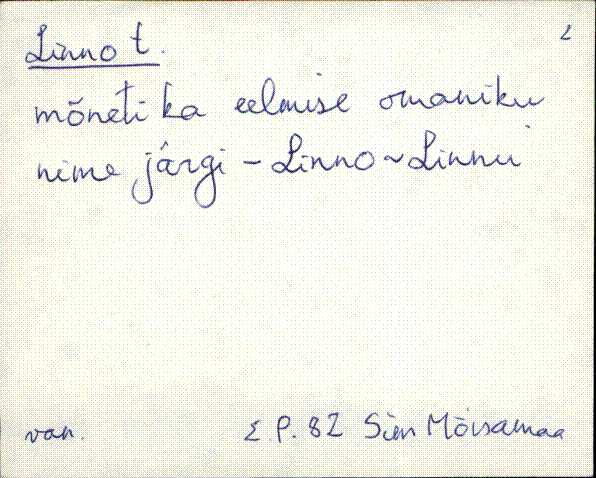 Linno t. 2
mõneti ka eelmise omaniku
nime järgi – Linno ~ Linnu
van. E.P. 82 Sim Mõisamaa